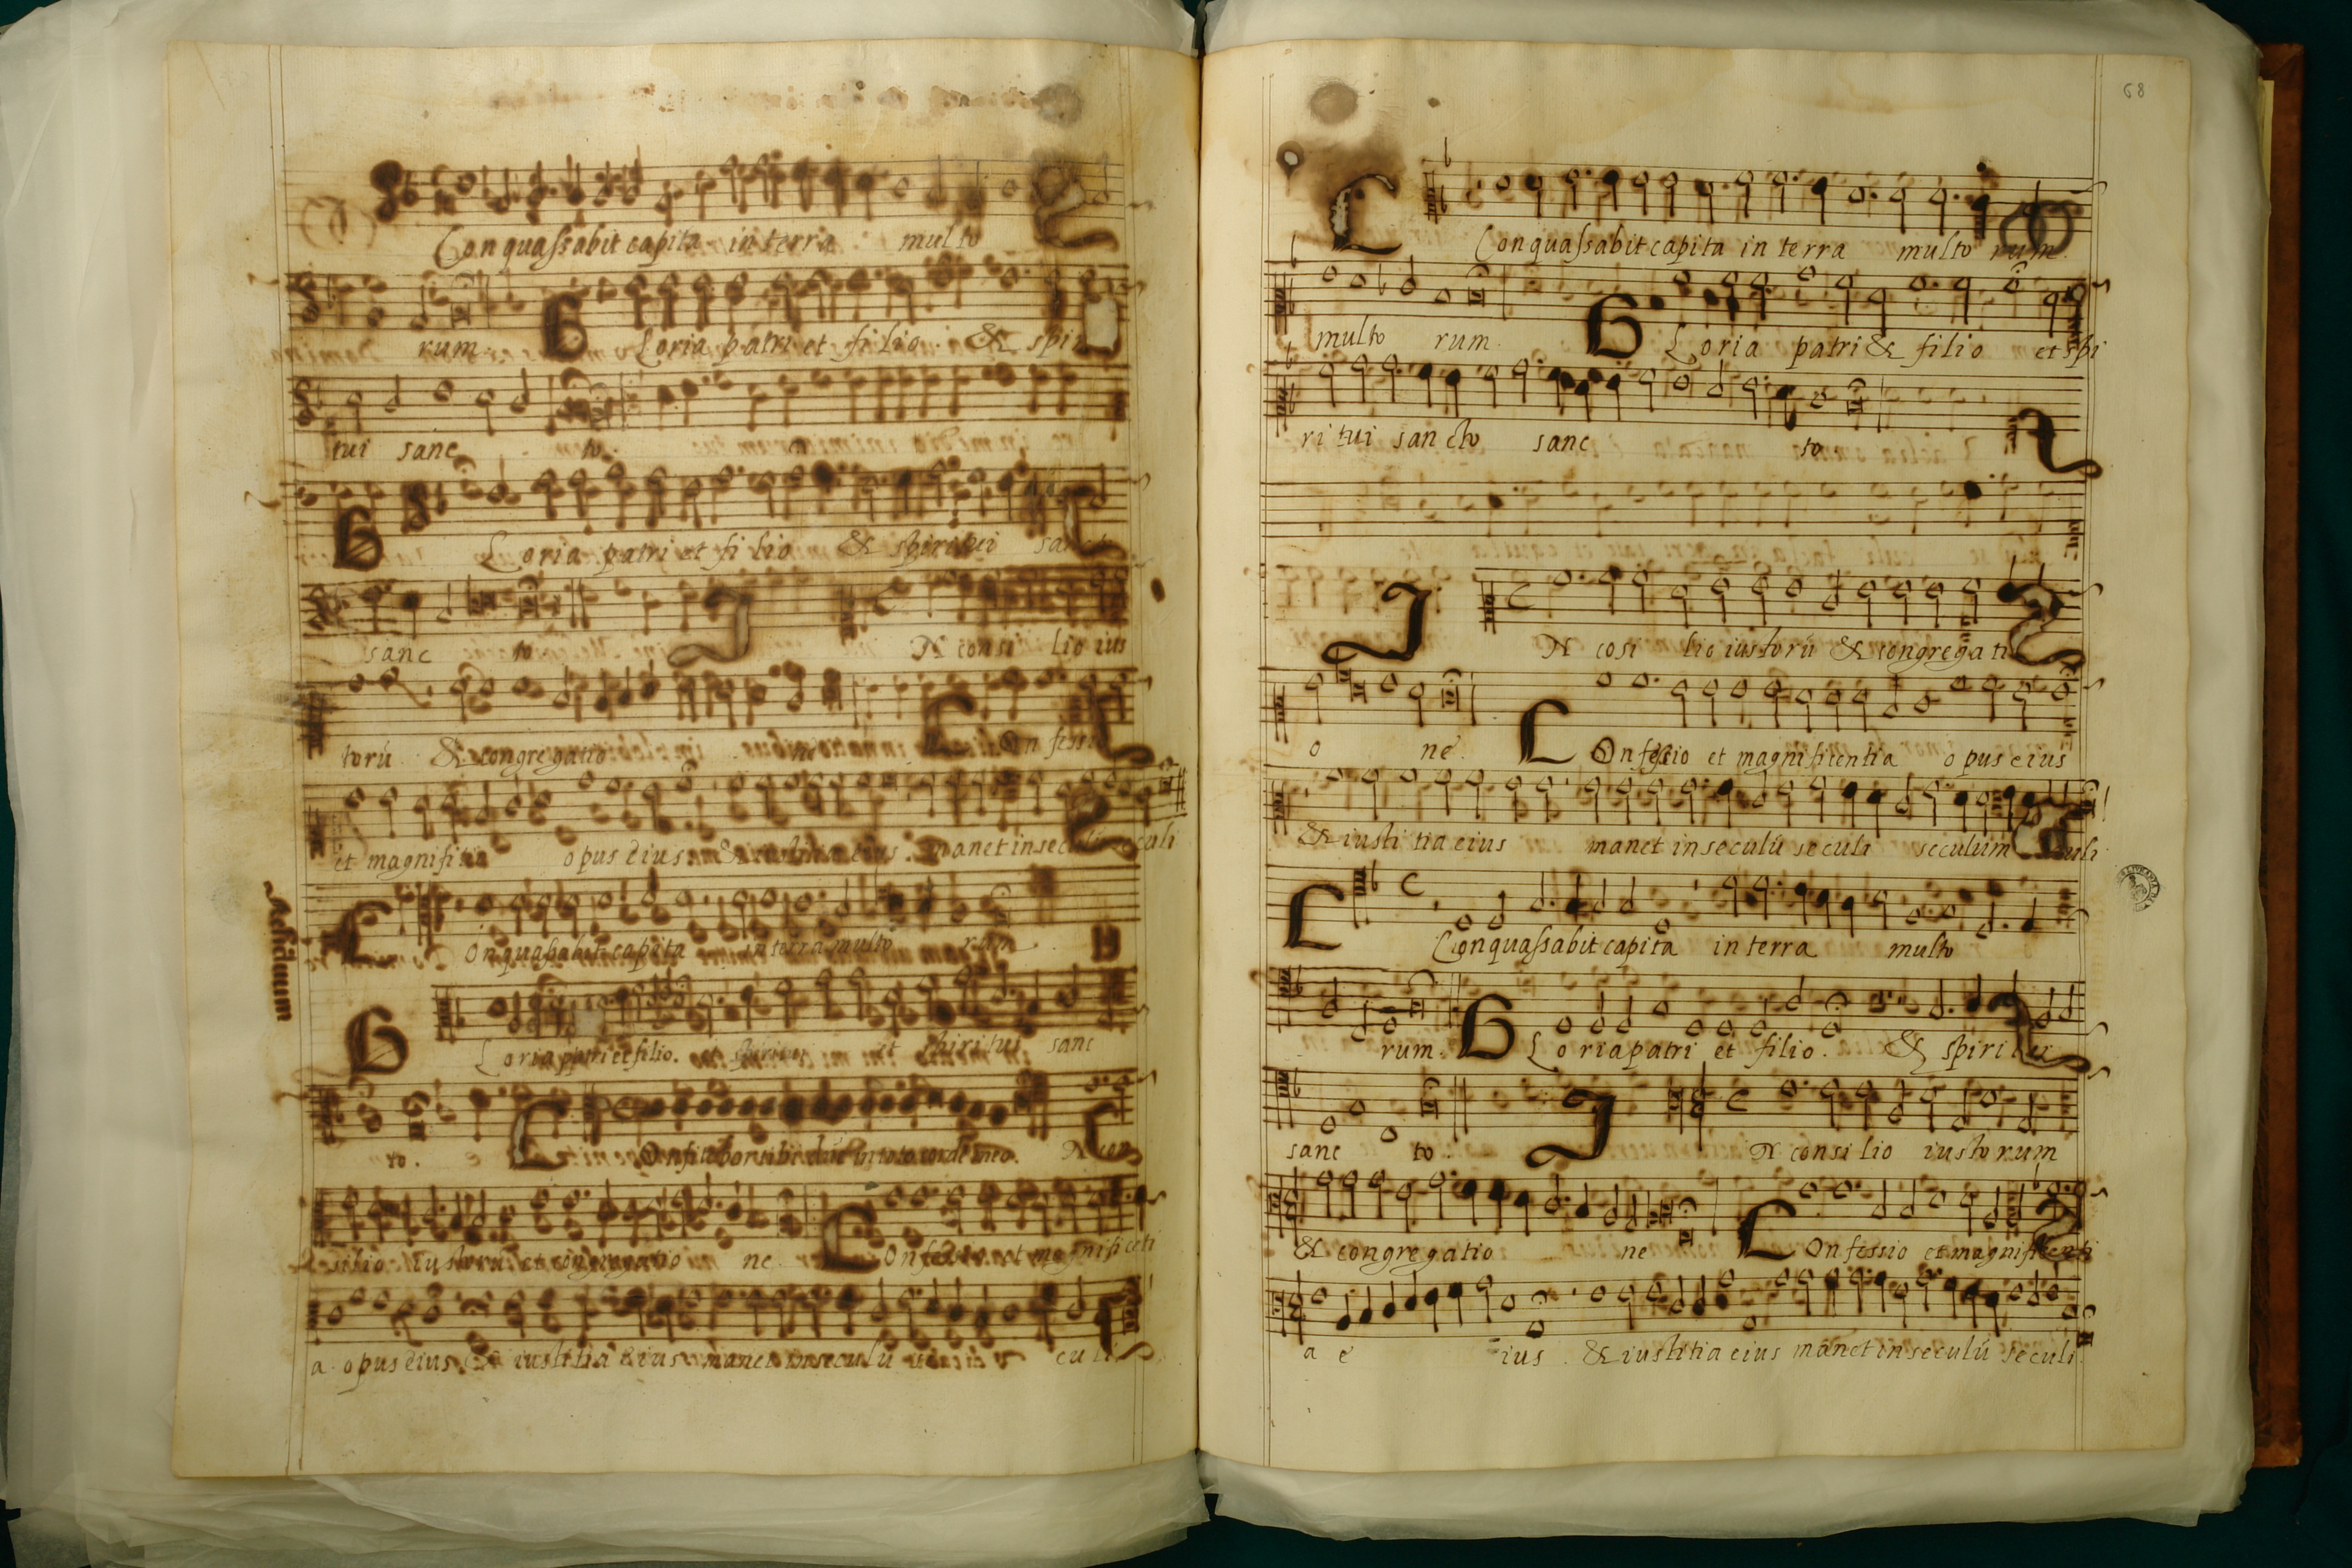 Conquassabit capita in terra multo
rum. Gloria patri et filio. & spiri
tui sanc to.
Gloria patri et filio & spiritui sancto
sanc to IN consi lio ius
torū & congregatio ne Confessio
et magnifitia opus eius & iustitia eius. manet in seculū seculi
Conquassabit capita in terra multo rum
Gloria patri et filio. et spiritui et spiritui sanc
to. Confitebor tibi dñe in toto corde meo. IN con
silio iustorū et congregatio ne. Confessio et magnificenti
a opus eius & iustitia eius manet in seculū seculi
68
Conquassabit capita in terra multo rum.
multo rum. Gloria patri & filio et spi
ri tui sancto sanc to
IN cōsi lio iustorū & congregati
o ne. Confessio et magnificentia opus eius
& iusti tia eius manet in seculū seculi seculum seculi
Conquassabit capita in terra multo
rum. Gloria patri et filio. & spiri tui
sanc to. IN consilio iustorum
& congregatio ne Confessio et magnificenti
a e ius. & iustitia eius manet in seculū seculi.